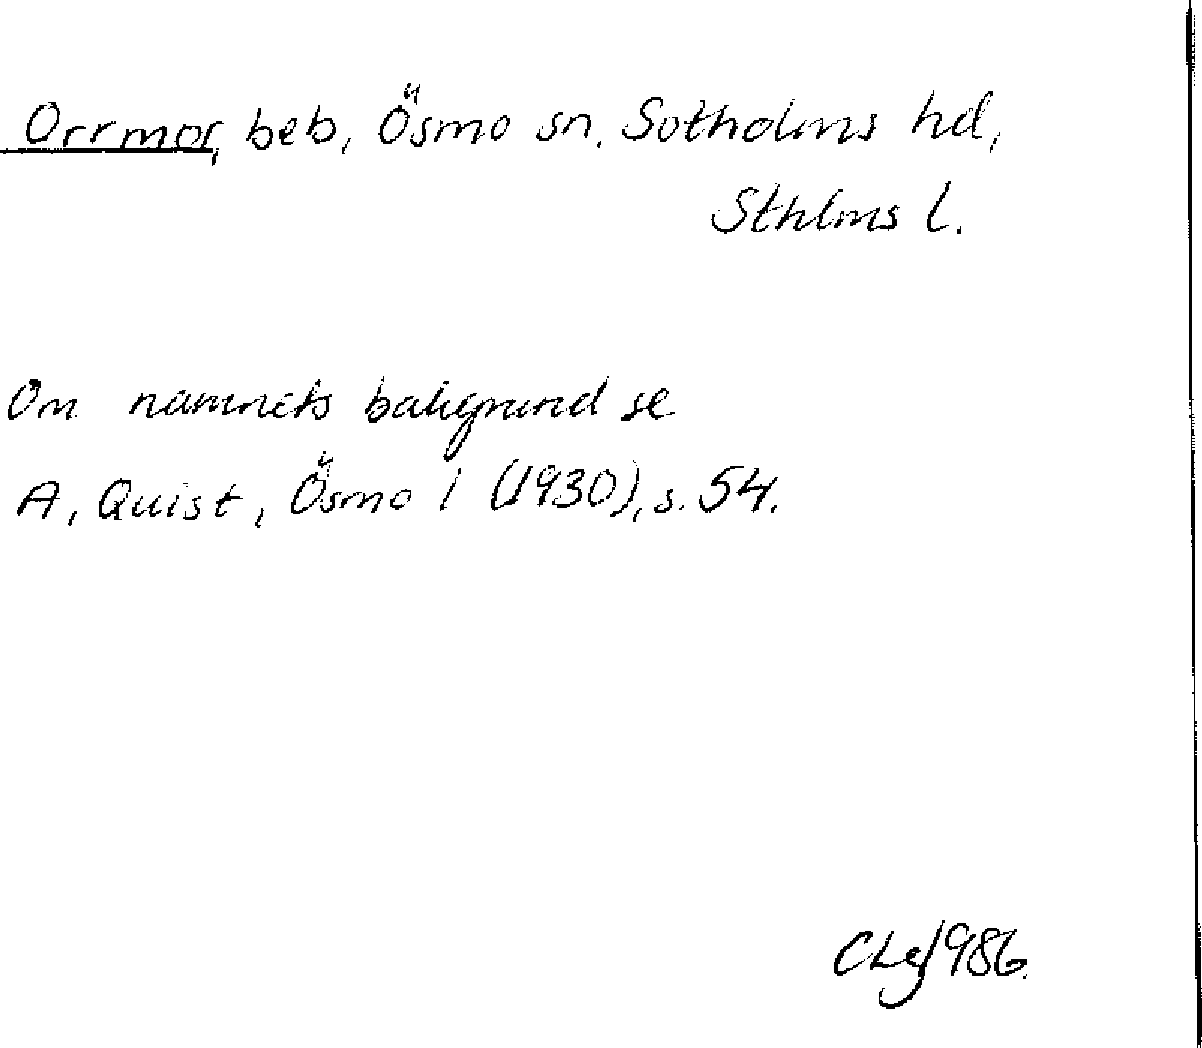 Orrmor, beb, Ösmo sn, Sotholms hd,
Sthlms l.
Om namnets bakgrund se
A, Quist, Ösmo 1 (1930), s. 54.
1986.